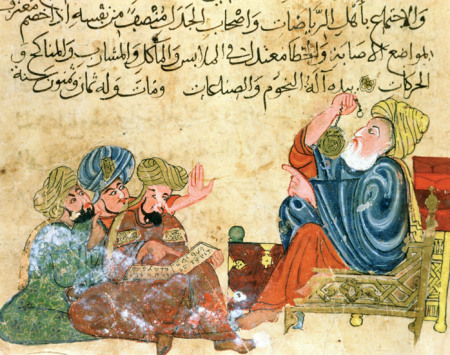 والاجتماع باهل الرياضات واصحاب الجدل منصف من نفسه اذا خصم معترف
المواضع الاصابة والخطا معتدل في الملابس والمآكل والمشارب والمناكح و
الحركات بيده آلة النجوم والصناعات ومات وله ثمان وستون سنة